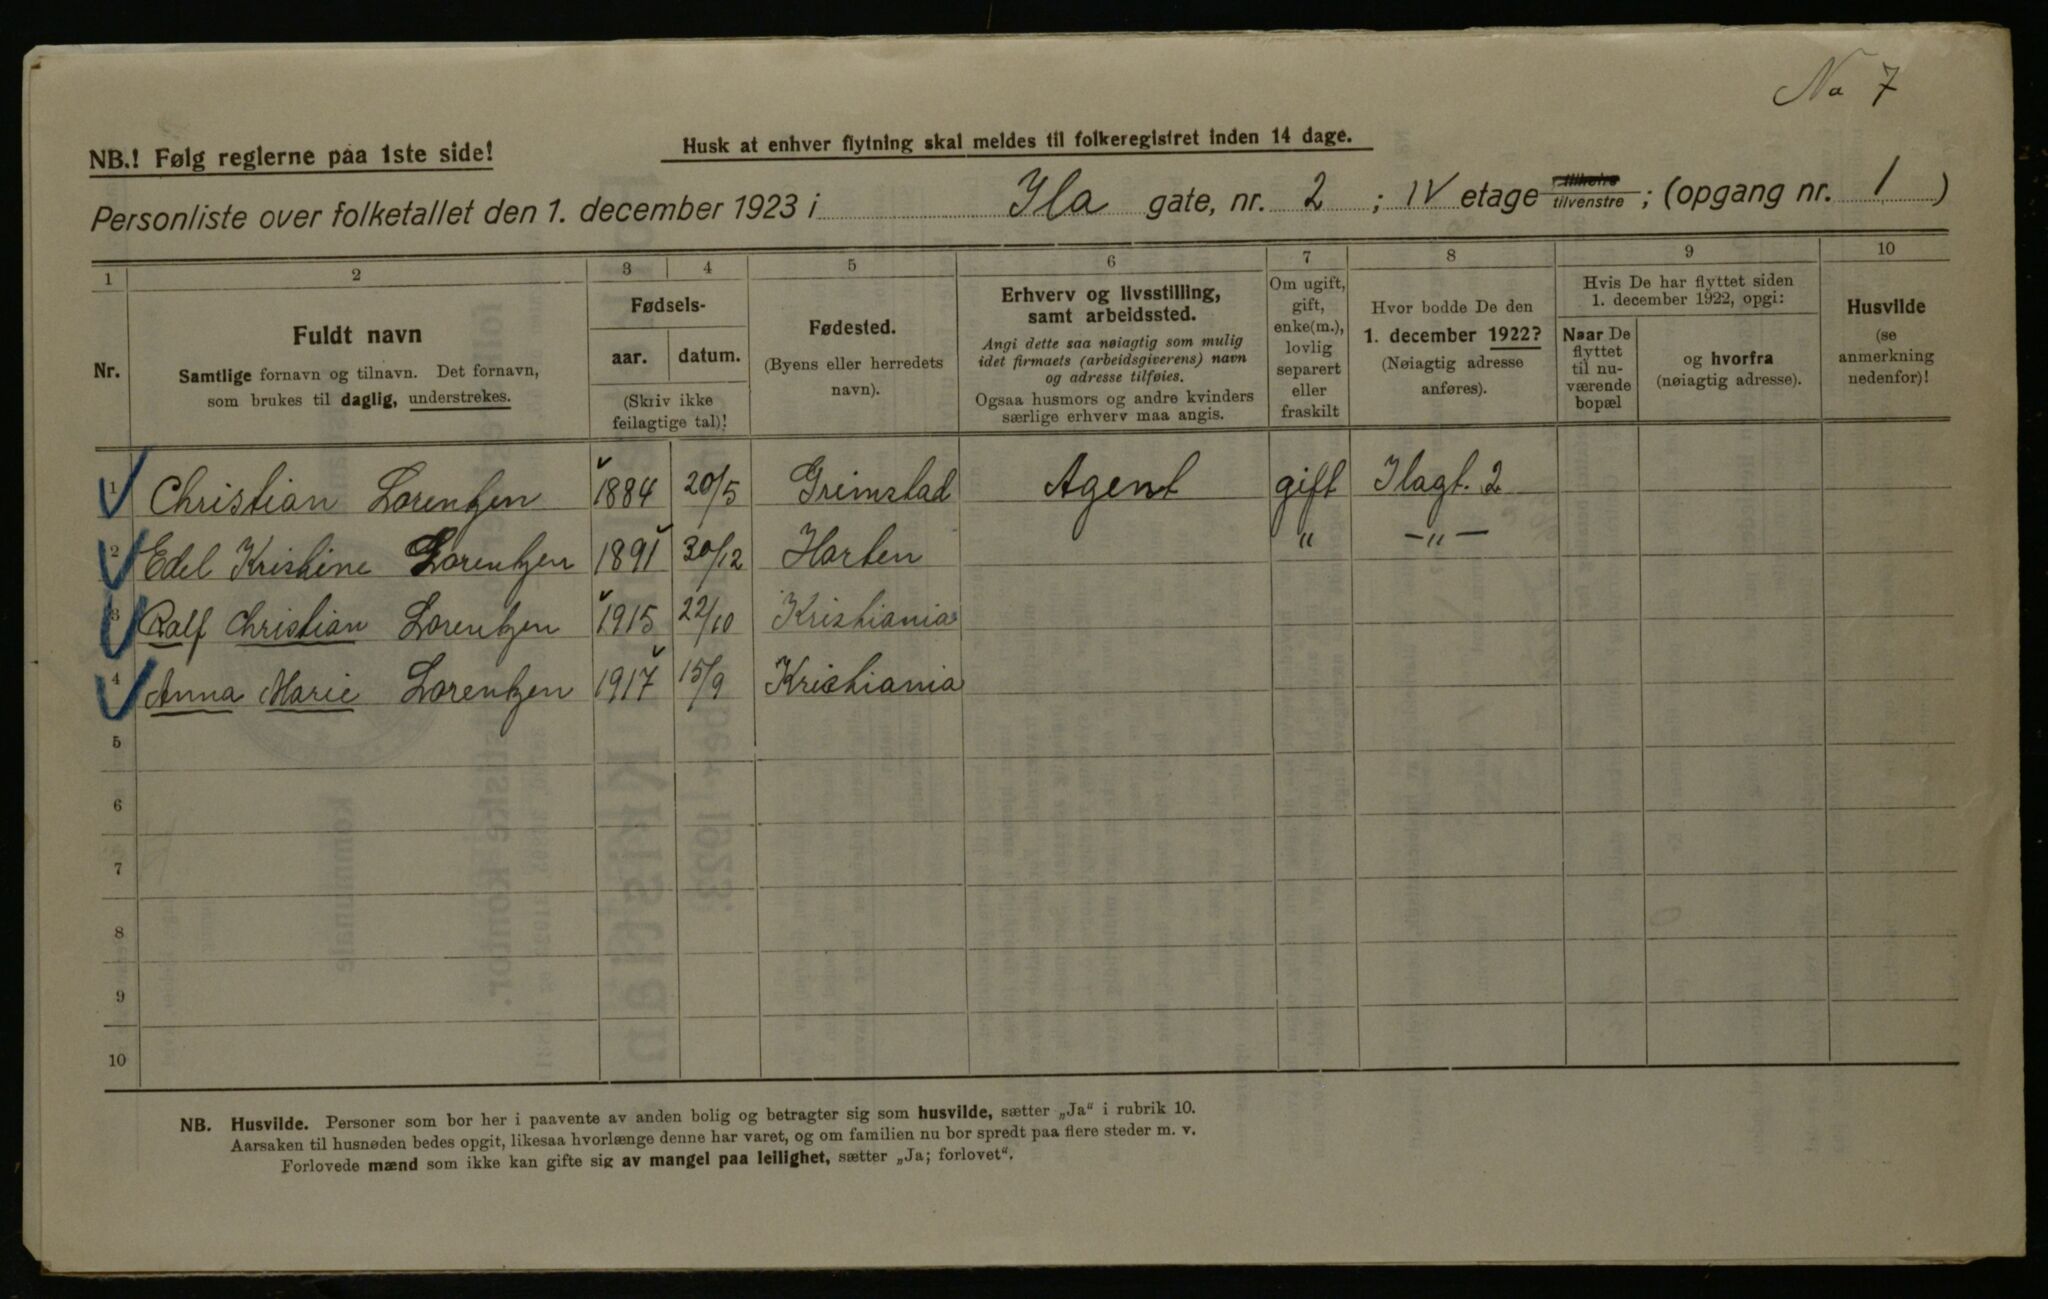 No 7
NB.! Følg reglerne paa 1ste side!
Husk at enhver flytning skal meldes til folkeregistret inden 14 dage.
Personliste over folketallet den 1. december 1923 i Ila gate, nr. 2 ; IV etage tilhøire tilvenstre ; (opgang nr. 1 )
1 2 3 4 5 6 7 8 9 10
Nr.
Fuldt navn
Samtlige fornavn og tilnavn. Det fornavn,
som brukes til daglig, understrekes.
Fødsels-
aar. datum.
(Skriv ikke
feilagtige tal)!
Fødested.
(Byens eller herredets
navn).
Erhverv og livsstilling,
samt arbeidssted.
Angi dette saa nøiagtig som mulig
idet firmaets (arbeidsgiverens) navn
og adresse tilføies.
Ogsaa husmors og andre kvinders
særlige erhverv maa angis.
Om ugift,
gift,
enke(m.),
lovlig
separert
eller
fraskilt
Hvor bodde De den
1. december 1922?
(Nøiagtig adresse
anføres).
Hvis De har flyttet siden
1. december 1922, opgi:
Naar De
flyttet
til nu-
værende
bopæl
og hvorfra
(nøiagtig adresse).
Husvilde
(se
anmerkning
nedenfor)!
1 Christian Lorentzen 1884 20/5 Grimstad Agent gift Ilagt. 2
2 Edel Kristine Lorentzen 1891 30/12 Horten " -"-
3 Rolf Christian Lorentzen 1915 22/10 Kristiania
4 Anna Marie Lorentzen 1917 15/9 Kristiania
5
6
7
8
9
10
NB. Husvilde. Personer som bor her i paavente av anden bolig og betragter sig som husvilde, sætter „Ja" i rubrik 10.
Aarsaken til husnøden bedes opgit, likesaa hvorlænge denne har varet, og om familien nu bor spredt paa flere steder m. v.
Forlovede mænd som ikke kan gifte sig av mangel paa leilighet, sætter „Ja; forlovet".